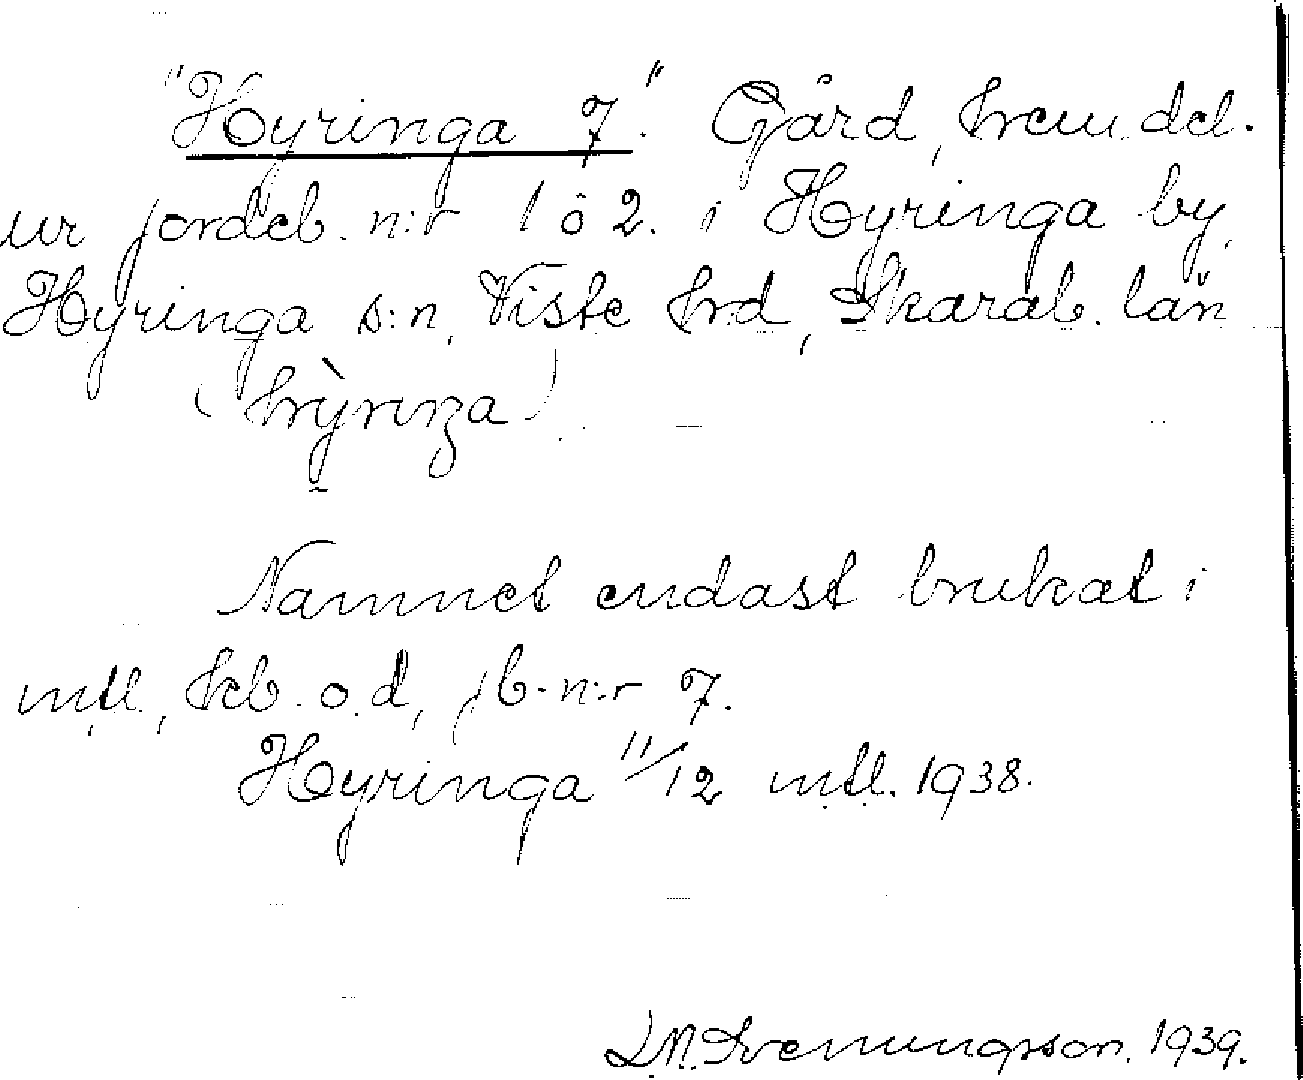 "Hyringa 7." Gård, hem.del.
ur jordeb. n:r 1 o 2. i Hyringa by,
Hyringa s:n, Viste hrd, Skarab. län
(hỳrıŋa)
Namnet endast brukat i
mtl., kb. o.d, jb. n:r 7.
Hyringa 11/12 mtl. 1938.
L.N. Svenungsson. 1939.